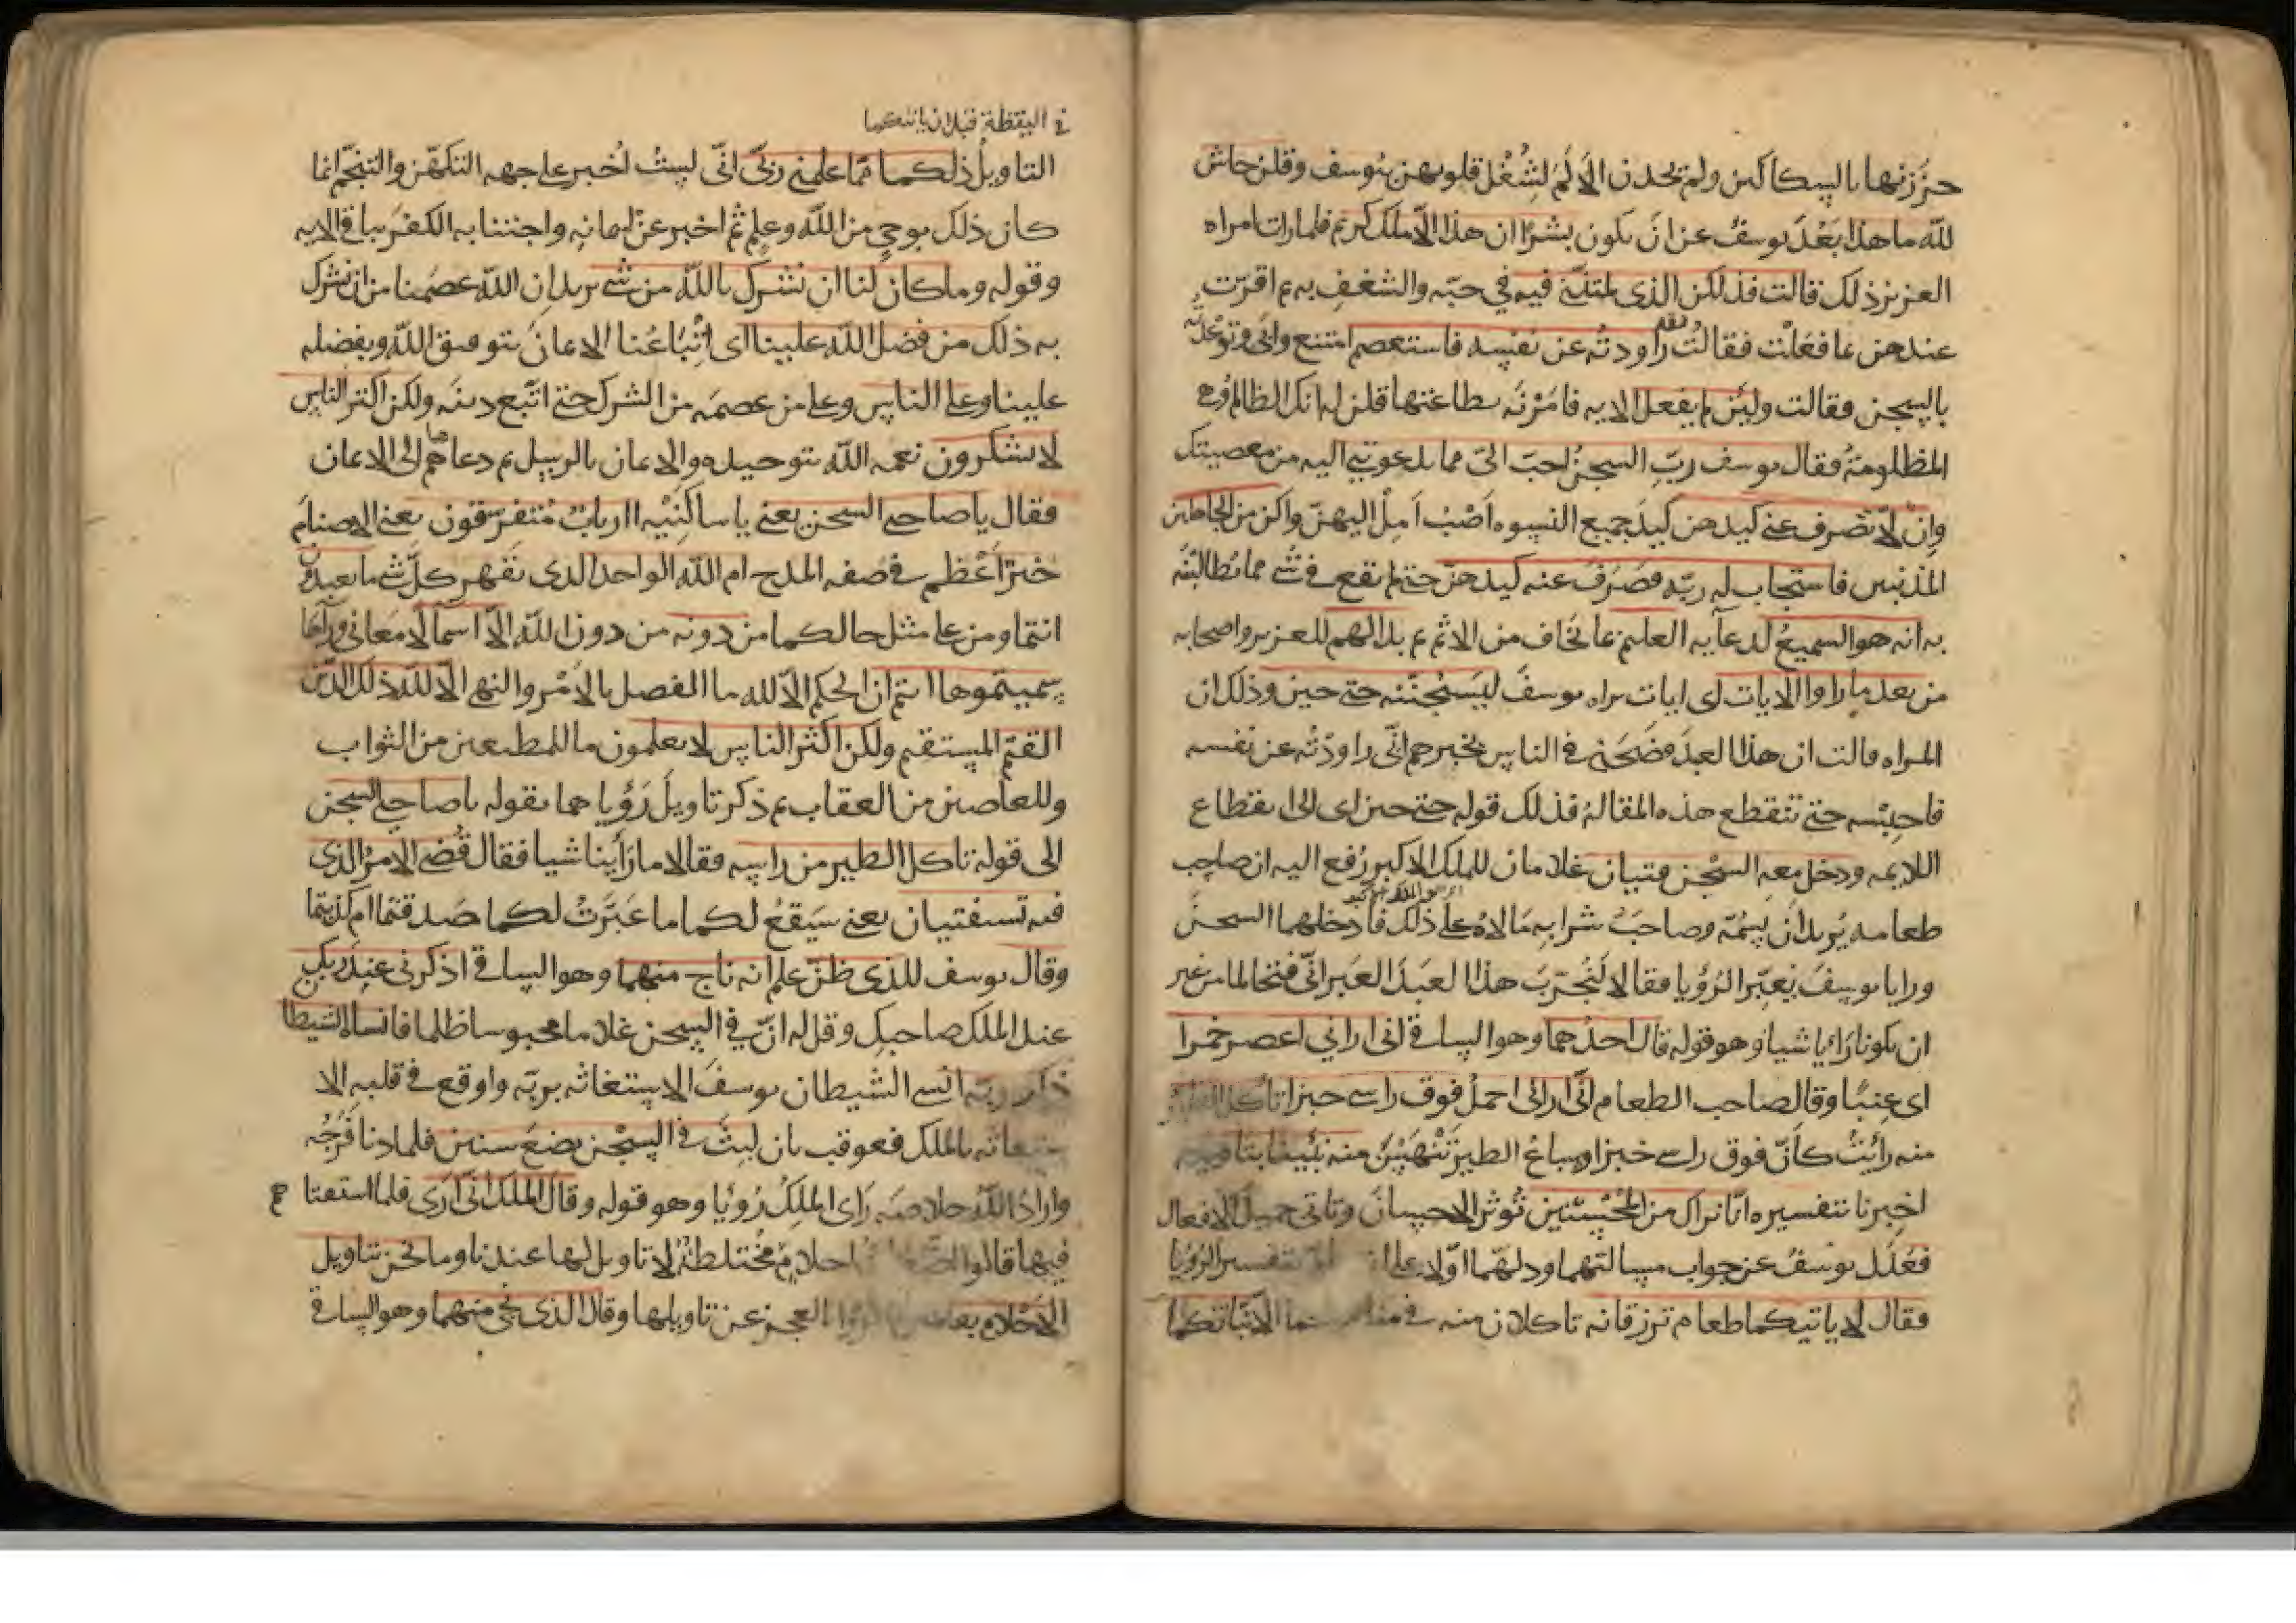 حززنها بالسكاكين ولم يجدن الالم لشغل قلوبهن بيوسف وقلن حاش
لله ما هذا بَعُدَ يوسفُ عن ان يكون بشرًا ان هذا الا ملك كريم فلما رات امراه
العزيز ذلك قالت فذلكن الذى لمتننى فيه في حبّه والشغف به ثم اقرّت
عندهن بما فعلت فقالت ولقد راودته عن نفسه فاستعصم امتنع وابى وتوعّدته
بالسجن فقالت ولئن لم يفعل الايه فامرنه بطاعتها قلن له انك الظالم وهى
المظلومة فقال يوسف ربّ السجن احبّ الىّ مما يدعوننى اليه من معصيتك
وان لا تصرف عنى كيدهن كيد جميع النسوه اَصْبُ اَمِلْ اليهنّ واكن من الجاهلين
المذنبين فاستجاب له ربّه فصرف عنه كيدهنّ حتى لم يقع في شى مما يطالبنه
به انه هو السميع لدعآيه العليم بما يخاف من الاثم ثم بدا لهم للعزيز واصحابه
من بعد ما راوا الايات اى ايات براه يوسفَ ليَسْجُنُنّه حتى حين وذلك ان
المراه قالت ان هذا العبدَ فضَحَنى في الناس يخبرهم انّى راودته عن نفسه
فاحبسه حتى تنقطع هذه المقالة فذلك قوله حتى حين اى الى انقطاع
اللايمه ودخل معه السجن فتيان غلامان للملك الاكبر رُفع اليه ان صاحب
طعامه يُريد ان يسُمّه وصاحبَ شرابه مَالاهُ على ذلك فادخلهما السجن
ورايا يوسفَ يعبّر الرؤيا فقالا لنُجرّبَ هذا العبدَ العبرانىّ فتحالما من غير
ان يكونا رَايا شيا وهو قوله قال احدهما وهو الساقى انى ارانى اعصر خمرا
اى عنبًا وقال صاحب الطعام انّى ارانى احمل فوق راسى خبزا تاكل الطير
منه رايتُ كانّ فوق راسى خبزا وسباعُ الطير تَنْهَشُ منه نبّئنا بتاويله
اخبرنا بتفسيره انّا نراك من المُحْسنين تُوثر الاحسان وتاتى جميل الافعال
فعَدَل يوسفُ عن جواب مسالتهما ودلهّما اوّلا على تفسير الرُؤيا
فقال لا ياتيكما طعام ترزقانه تاكلان منه في الا نبّاتكما
في اليقظة قبل ان ياتيكما
التاويلُ ذلكما ممّا علمنى ربّى انّى لستُ اُخبر على جهه التكهّن والتنجّم انما
كان ذلك بوحي من الله وعِلم ثم اخبر عن ايمانه واجتنابه الكفر بباقى الايه
وقوله وما كان لنا ان نشرك بالله من شى يريد ان الله عصمنا من ان نشرك
به ذلك من فضل الله علينا اى اتّباعُنا الايمانَ بتوفيق الله وبفضله
علينا وعلى الناس وعلى من عصمَه من الشرك حتى اتّبع دينَه ولكن اكثر الناس
لا يشكرون نعمه الله بتوحيده والايمان بالرسل ثم دعاهما الى الايمان
فقال يا صاحبى السجن يعنى يا ساكِنَيْه اارباب متفرّقون يعنى الاصنام
خيرٌ اعظم في صفه المدح ام الله الواحد الذى يقهر كلّ شى ما تعبدون
انتما ومن على مثل حالكما من دونه من دون الله الا اسمآ لا معانى ورآها
سميتموها انتم ان الحكم الا لله ما الفصل بالامْر والنهى الا لله ذلك الدّين
القيّم المستقيم ولكن اكثر الناس لا يعلمون ما للمطيعين من الثواب
وللعاصين من العقاب ثم ذكر تاويلَ رؤياهما بقوله يا صاحبى السجن
الى قوله تاكل الطير من راسه فقالا ما رَاينا شيا فقال قُضى الامرُ الذى
فيه تستفتيان يعنى سَيَقعُ لكما ما عَبّرْتُ لكما صَدقتما ام كذبتما
وقال يوسف للذى ظنّ علم انه ناج منهما وهو الساقى اذكرنى عند ربك
عند الملك صاحبك وقل له انّ في السجن غلاما محبوسا ظلما فانساه الشيطان
ذكر ربّه انسى الشيطان يوسفَ الاستغاثه بربّه واوقع في قلبه الا
ستغاثه بالملك فعوقب بان لبثَ في السجن بضعَ سنين فلما دنا فَرَجُه
واراد الله خلاصَه رَاى الملكُ رُؤيا وهو قوله وقال الملك انى اَرَى فلما استفتاهم
فيها قالوا احلام مختلطةٌ لا تاويل لها عندنا وما نحن بتاويل
الاحلام بعالمين العجز عن تاويلها وقال الذى نجى منهما وهو الساقى